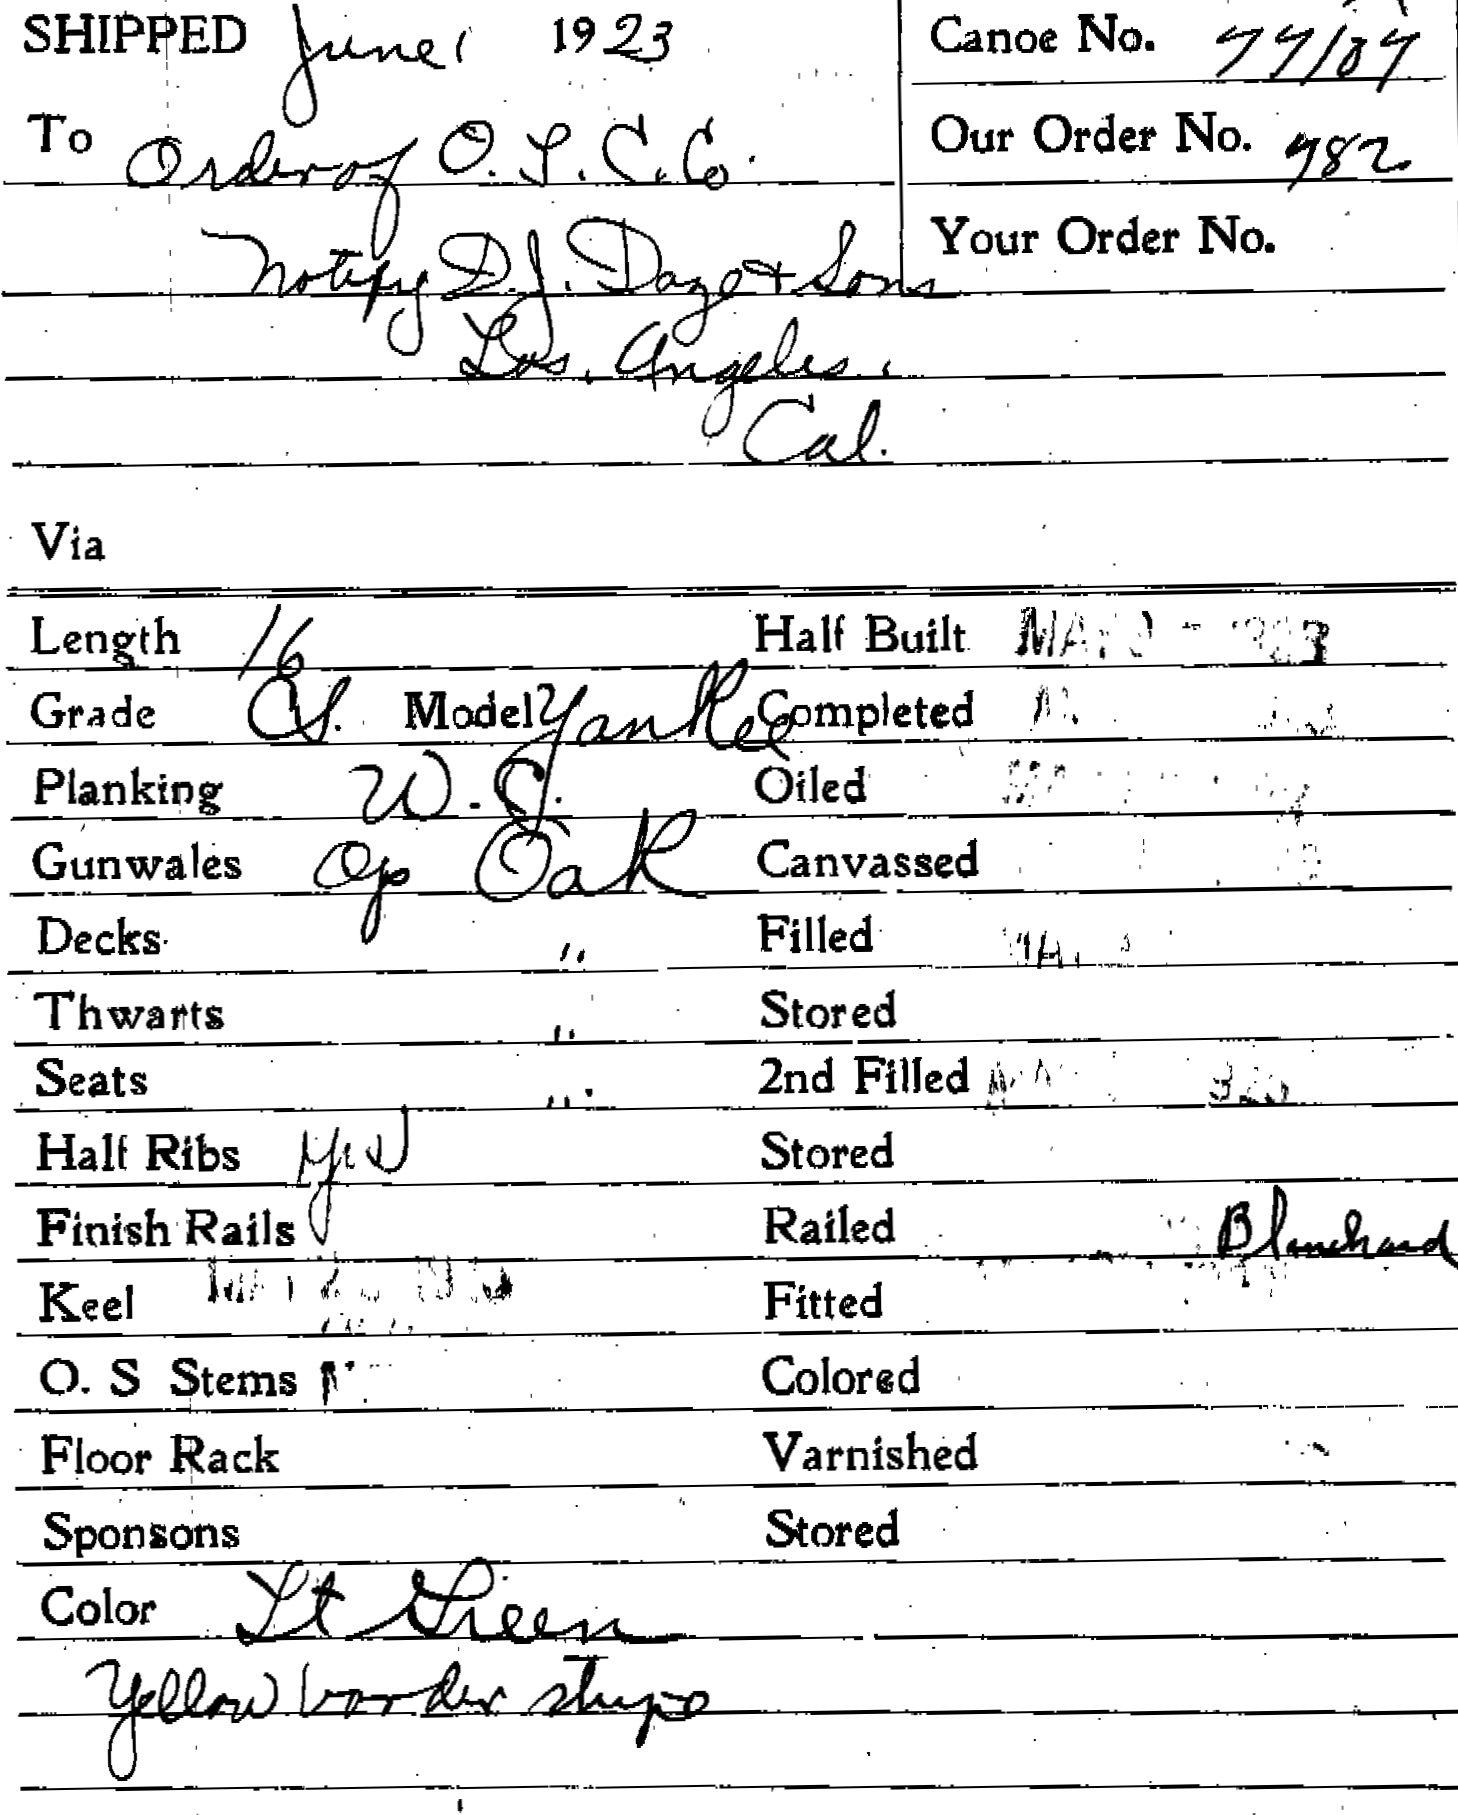 SHIPPED June 1 1923 Canoe No. 77107
To Order of O. T. C. Co. Our Order No. 982
Notify D. J. Daze & Sons Your Order No.
Los. Angeles.
Cal.
Via
Length 16 Half Built
Grade CS. Model Yankee Completed
Planking W. C. Oiled
Gunwales Op Oak Canvassed
Decks " Filled
Thwarts " Stored
Seats " 2nd Filled
Half Ribs Stored
Finish Rails Railed Blanchard
Keel Fitted
O. S Stems Colored
Floor Rack Varnished
Sponsons Stored
Color Lt Green
Yellow border stripe